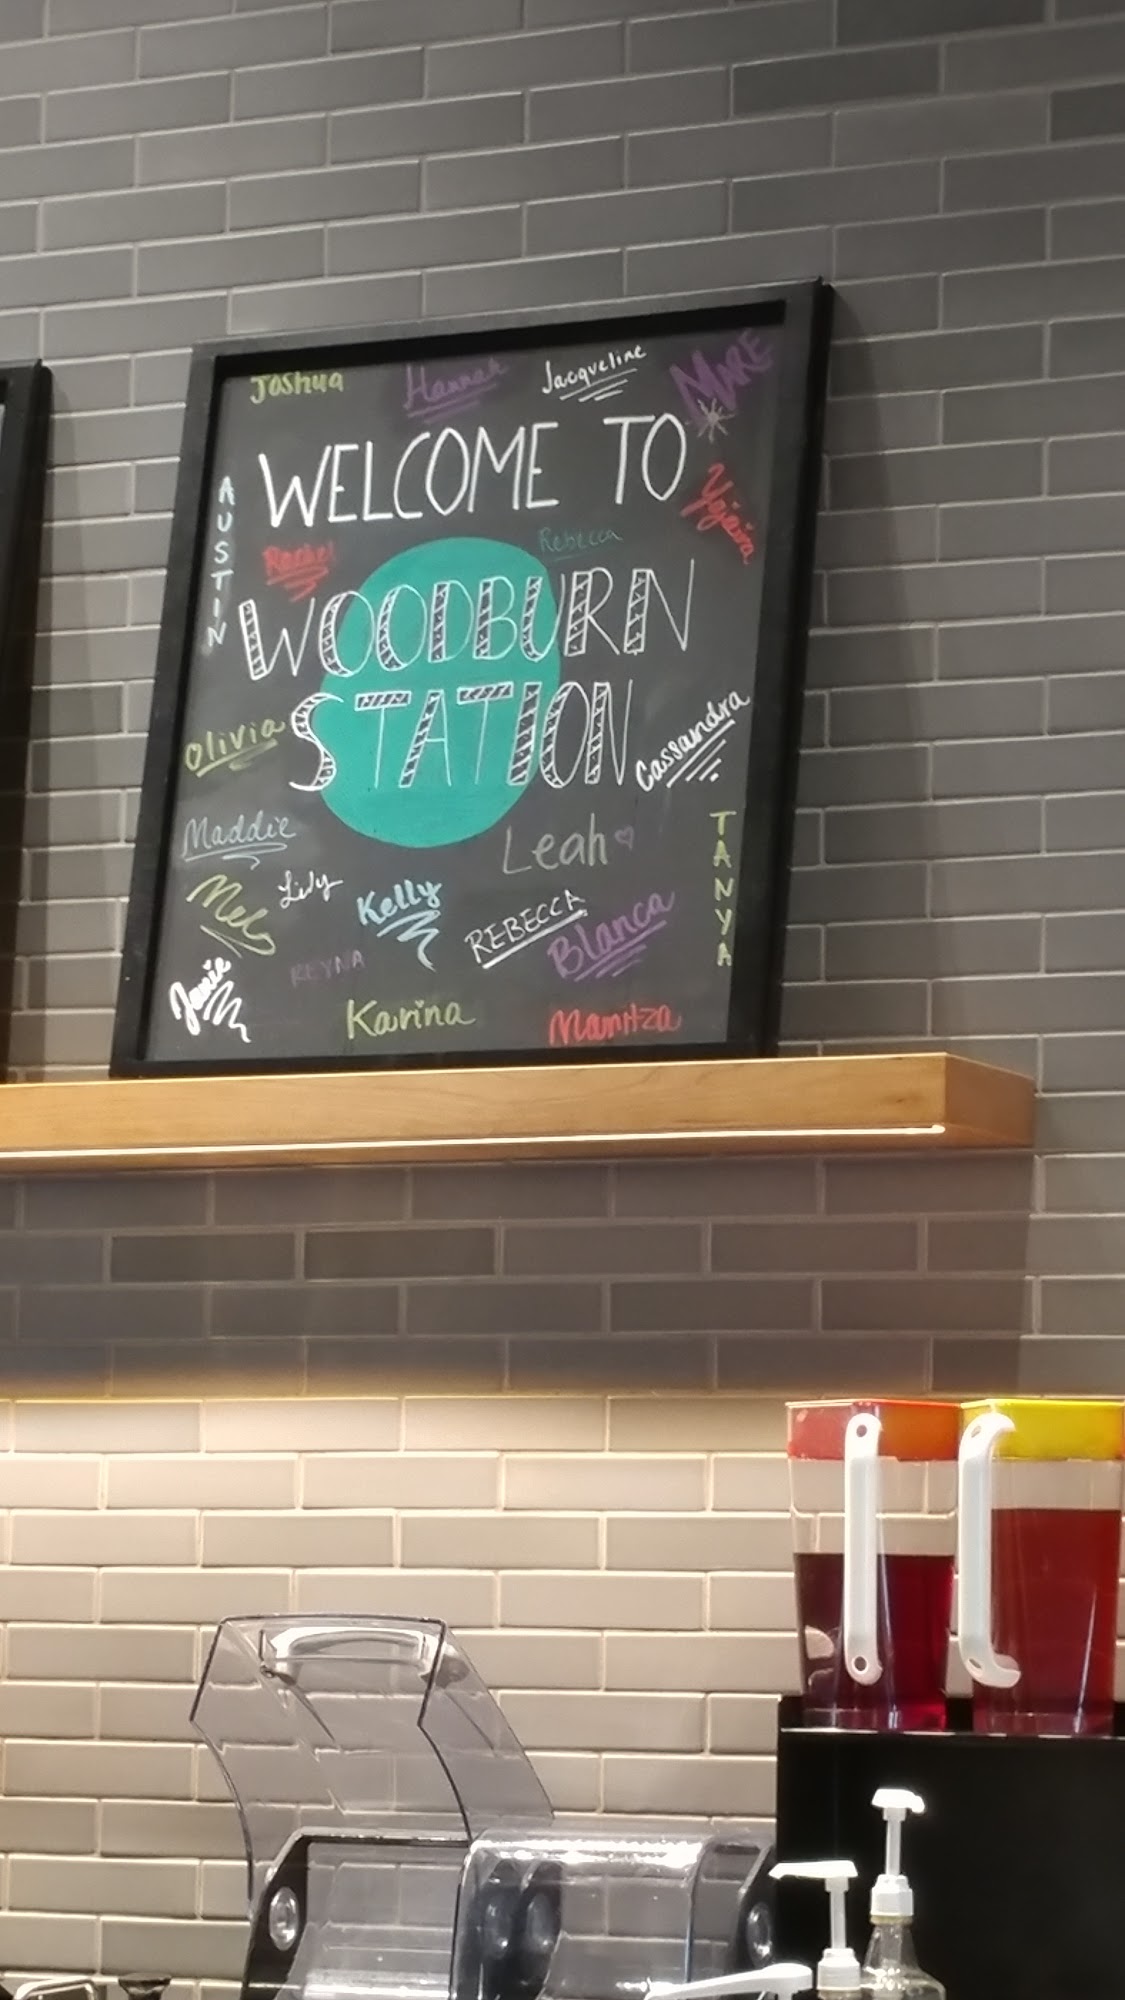 Joshua
Hannah
Jacqueline
MARE
WELCOME TO
AUSTIN
Yojaira
Rachel
Rebecca
WOODBURN
STATION
Olivia
Cassandra
Maddie
Leah
TANYA
Mel
Lily
Kelly
REBECCA
Blanca
REYNA
Janie
Karina
Maritza